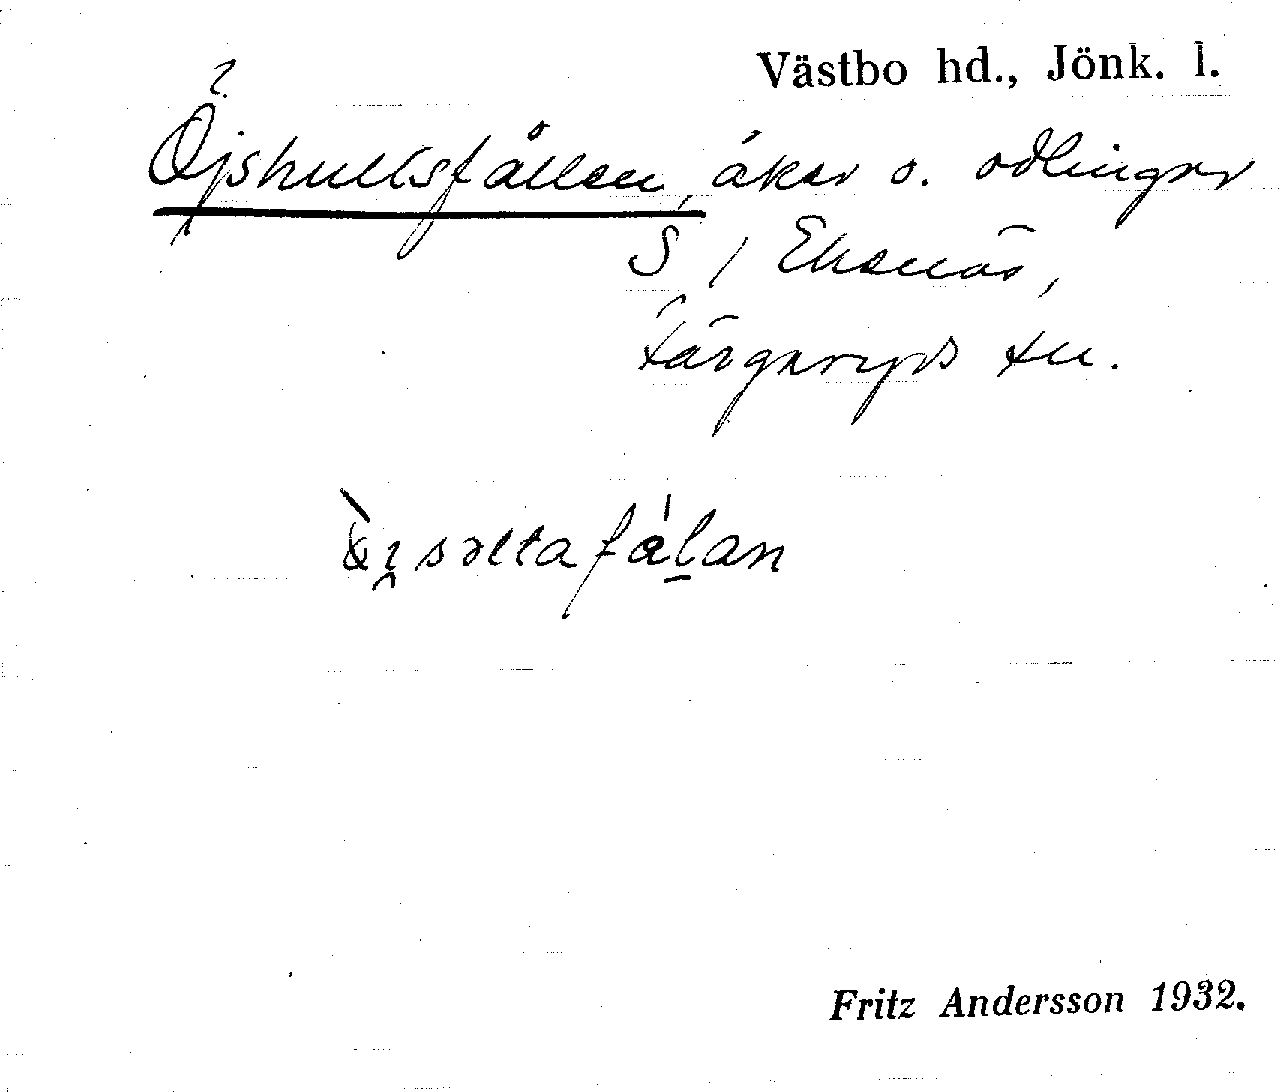 Västbo hd., Jönk. l.
?
Öjshultsfållen, åker o. odlingar
S / Ekenäs,
Färgaryds sn.
Fritz Andersson 1932.